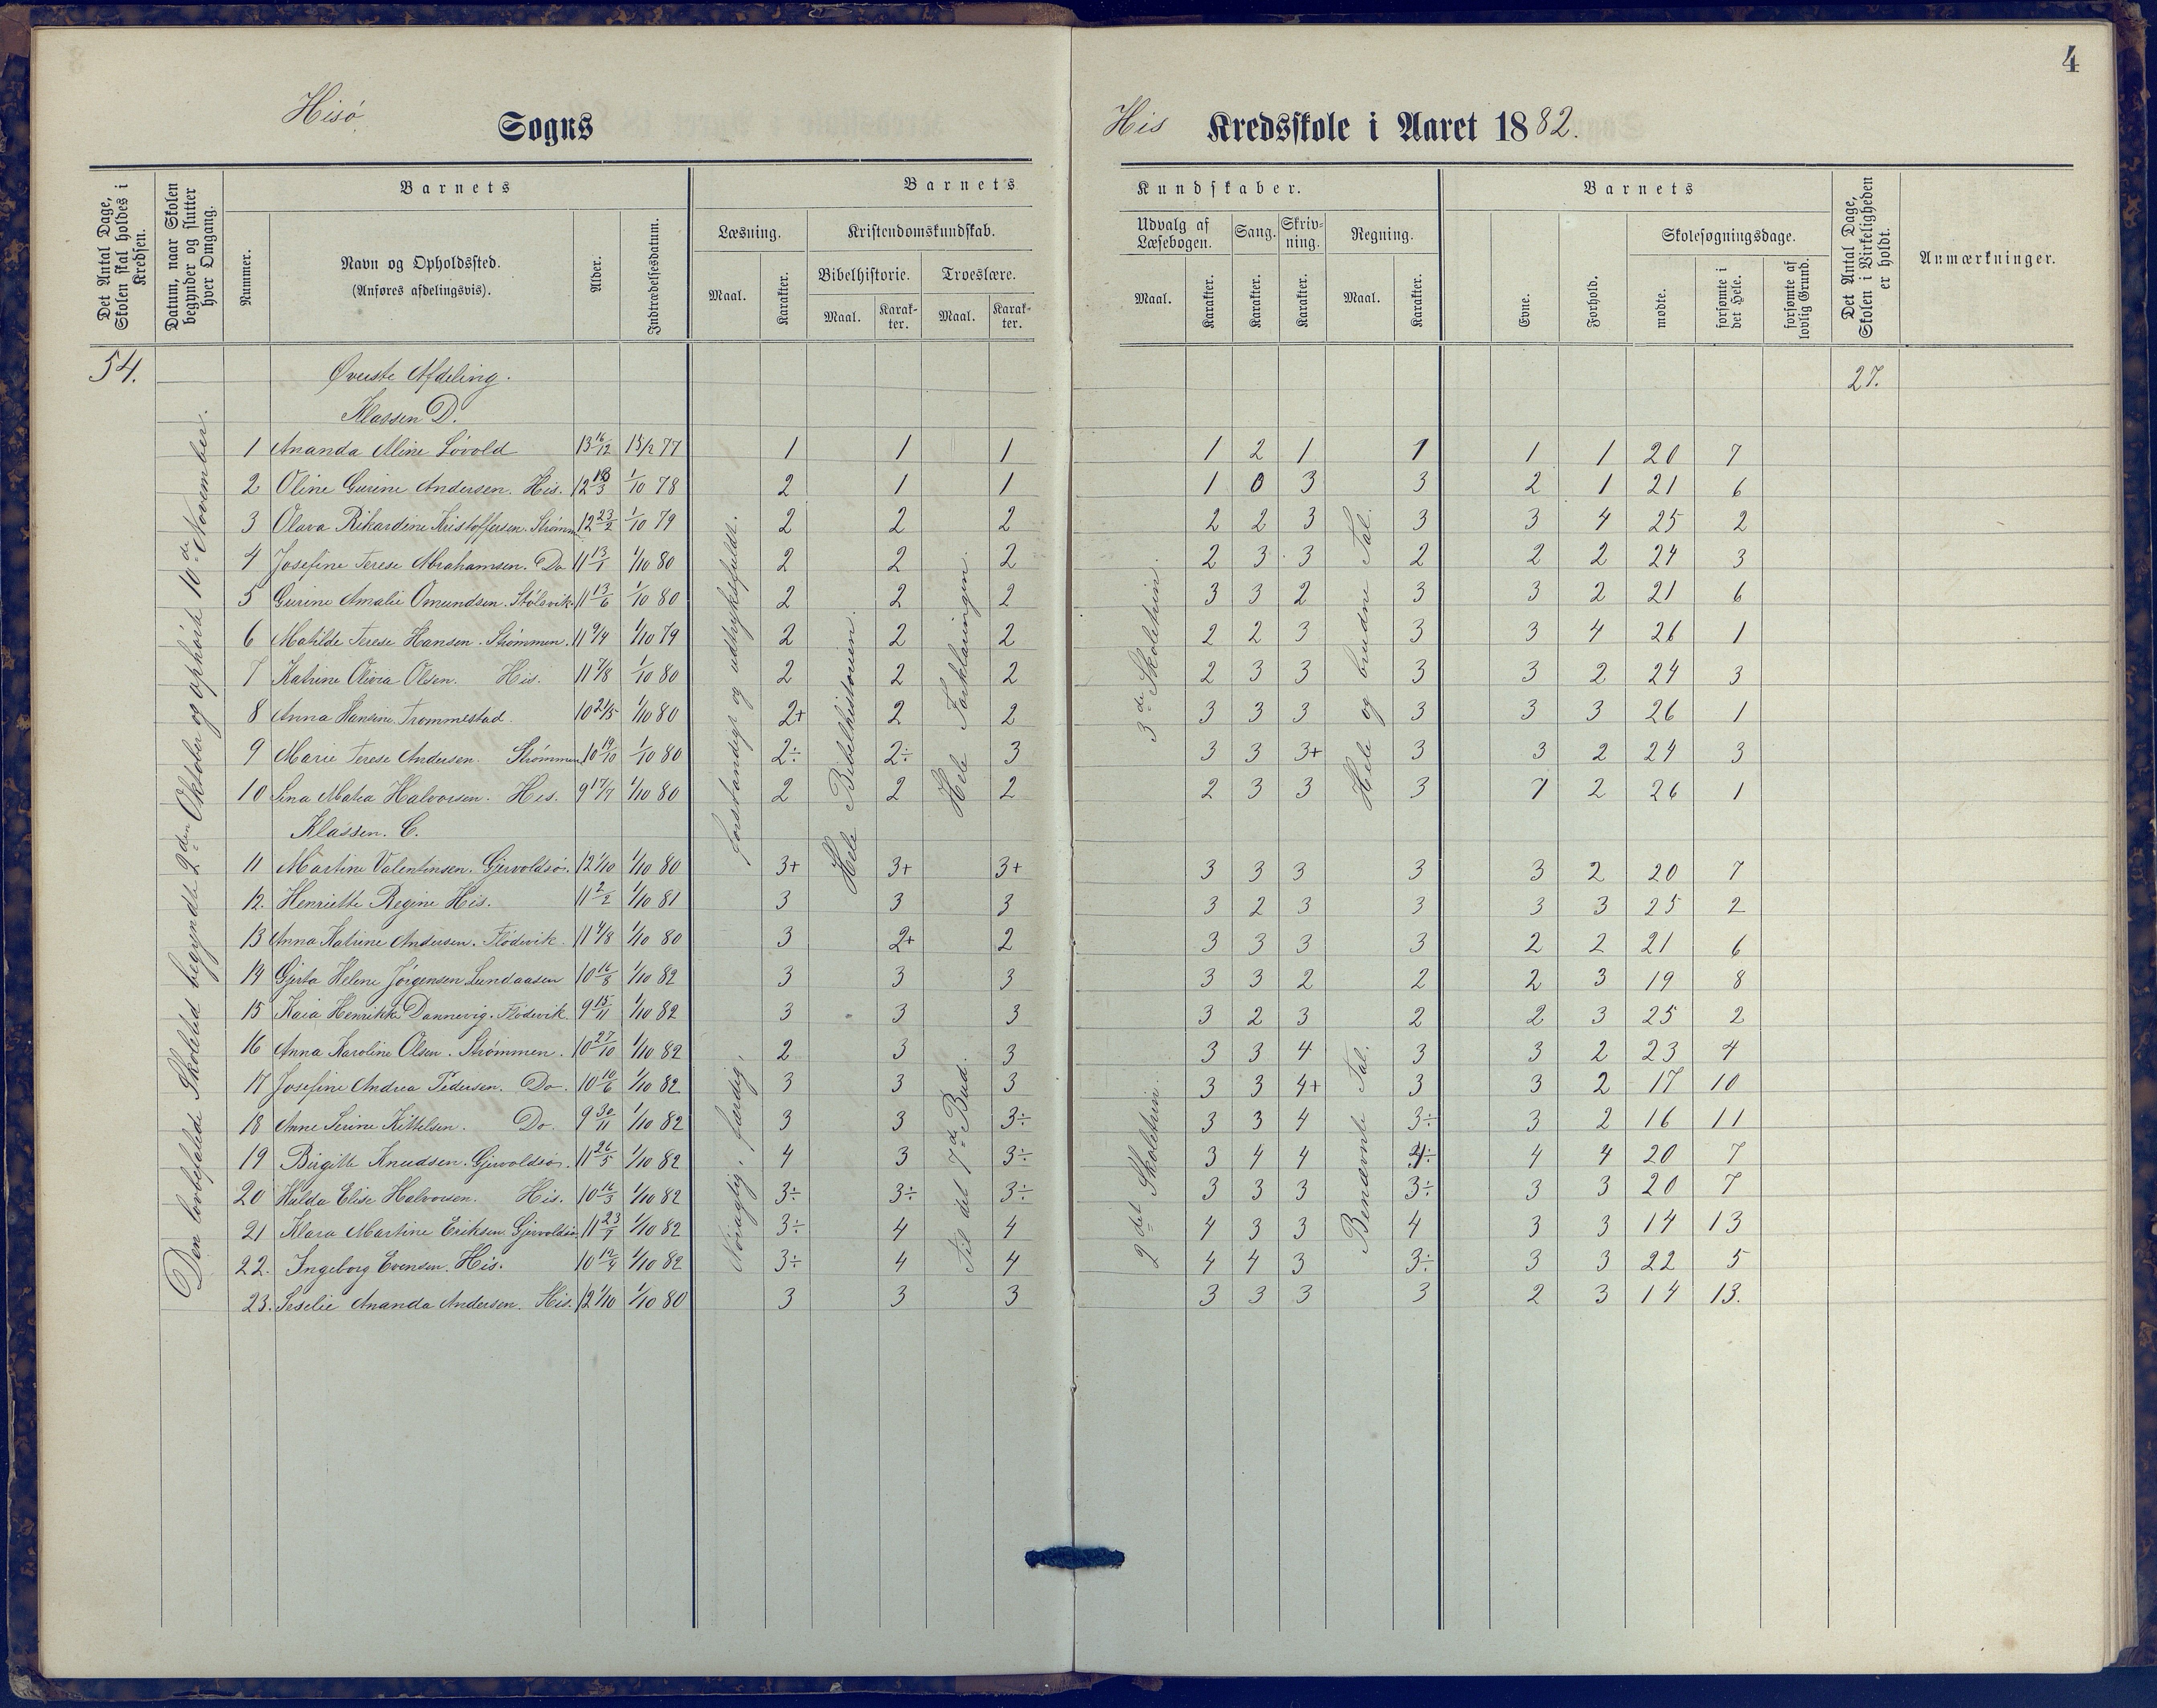 4
Hisø Sogns
His Kredsskole i Aaret 1882.
Det Antal Dage, Skolen skal holdes i Kredsen.
Datum, naar Skolen begynder og slutter hver Omgang.
Barnets
Nummer.
Navn og Opholdssted.
(Anføres afdelingsvis).
Alder.
Indtrædelsesdatum.
Barnets
Læsning.
Maal.
Karakter.
Kristendomskundskab.
Bibelhistorie.
Maal.
Karakter.
Troeslære.
Maal.
Karakter.
Kundskaber.
Udvalg af Læsebogen.
Maal.
Karakter.
Sang.
Karakter.
Skrivning.
Karakter.
Regning.
Maal.
Karakter.
Barnets
Evne.
Forhold.
Skolesøgningsdage.
mødte.
forsømte i det Hele.
forsømte af lovlig Grund.
Det Antal Dage, Skolen i Virkeligheden er holdt.
Anmærkninger.
54.
27.
Den lovbefalede Skoletid begyndte 2den Oktober og ophørte 10de November.
Øverste Afdeling.
Klassen D.
forstandigt og udtryksfuldt.
Hele Bibelhistorien.
Hele Forklaringen.
3de Skoletrin.
Hele og brudne Tal.
1 Ananda Aline Løvold 13 16/12 15/2 77 1 1 1 1 2 1 1 1 1 20 7
2 Oline Gurine Andersen. His. 12 18/3 1/10 78 2 1 1 1 0 3 3 2 1 21 6
3 Olava Rikardine Kristoffersen. Strømm 12 23/2 1/10 79 2 2 2 2 2 3 3 3 4 25 2
4 Josefine Terese Abrahamsen. Do 11 13/1 1/10 80 2 2 2 2 3 3 2 2 2 24 3
5 Gurine Amalie Omundsen. Stølsvik. 11 13/6 1/10 80 2 2 2 3 3 2 3 3 2 21 6
6 Matilde Terese Hansen. Strømmen. 11 9/4 1/10 79 2 2 2 2 2 3 3 3 4 26 1
7 Katrine Olivia Olsen. His. 11 7/8 1/10 80 2 2 2 2 3 3 3 3 2 24 3
8 Anna Hansine Trommestad. 10 21/5 1/10 80 2+ 2 2 3 3 3 3 3 3 26 1
9 Marie Terese Andersen. Strømmen 10 19/10 1/10 80 2÷ 2÷ 3 3 3 3+ 3 3 2 24 3
10 Lina Matea Halvorsen. His. 9 17/7 1/10 80 2 2 2 2 3 3 3 1 2 26 1
Klassen. C.
Nøiagtig, færdig.
Til det 7de Bud.
2det Skoletrin.
Benævnte Tal.
11 Martine Valentinsen. Gjervoldsø. 12 1/10 1/10 80 3+ 3+ 3+ 3 3 3 3 3 2 20 7
12. Henriette Regine His. 11 2/2 1/10 81 3 3 3 3 2 3 3 3 3 25 2
13 Anna Katrine Andersen. Flødevik. 11 4/8 1/10 80 3 2+ 2 3 3 3 3 2 2 21 6
14 Gjerta Helene Jørgensen Lundaasen 10 16/8 1/10 82 3 3 3 3 3 2 2 2 3 19 8
15 Kaia Henrikke Dannevig. Flødevik. 9 15/11 1/10 82 3 3 3 3 2 3 2 2 3 25 2
16 Anna Karoline Olsen. Strømmen. 10 27/10 1/10 82 2 3 3 3 3 4 3 3 2 23 4
17 Josefine Andrea Pedersen. Do. 10 10/6 1/10 82 3 3 3 3 3 4+ 3 3 2 17 10
18 Anne Serine Kittelsen. Do. 9 30/11 1/10 82 3 3 3÷ 3 3 4 3÷ 3 2 16 11
19 Birgitte Knudsen. Gjervoldsø. 11 26/5 1/10 82 4 3 3÷ 3 4 4 4÷ 4 4 20 7
20 Hulda Elise Halvorsen. His. 10 16/3 1/10 82 3÷ 3÷ 3÷ 3 3 3 3÷ 3 3 20 7
21 Klara Martine Eriksen Gjervoldsø 11 23/1 1/10 82 3÷ 4 4 4 3 3 4 3 3 14 13
22. Ingeborg Evensen. His. 10 12/4 1/10 82 3÷ 4 4 4 4 3 3÷ 3 3 22 5
23. Seselie Ananda Andersen. His. 12 1/10 1/10 80 3 3 3 3 3 3 3 2 3 14 13.